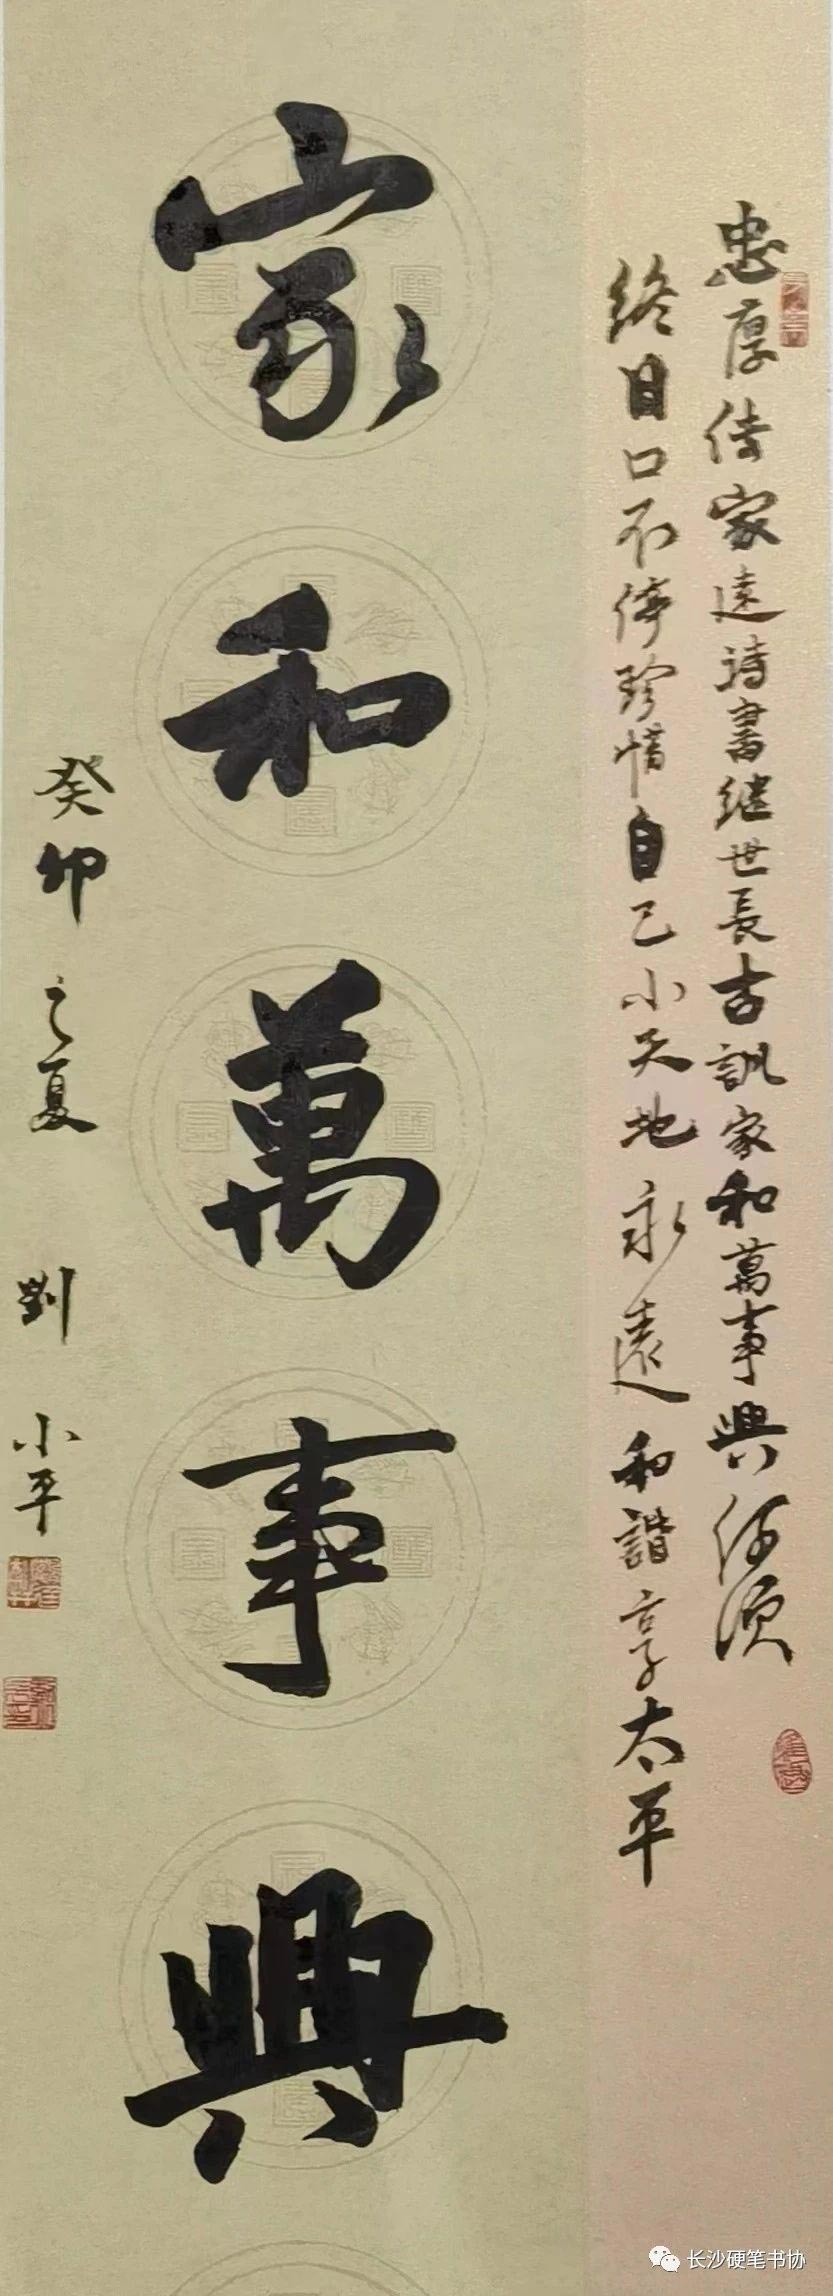 忠厚传家远詩書继世長古訓家和萬事興何須
终日口不停珍惜自己小天地永遠和諧享太平
家和萬事興
癸卯之夏 劉小平
长沙硬笔书协